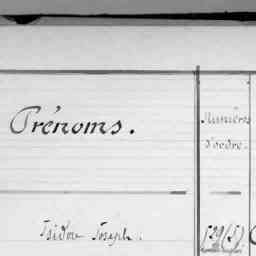 Prénoms.
Numéros
d'ordre.
Isidore Joseph.